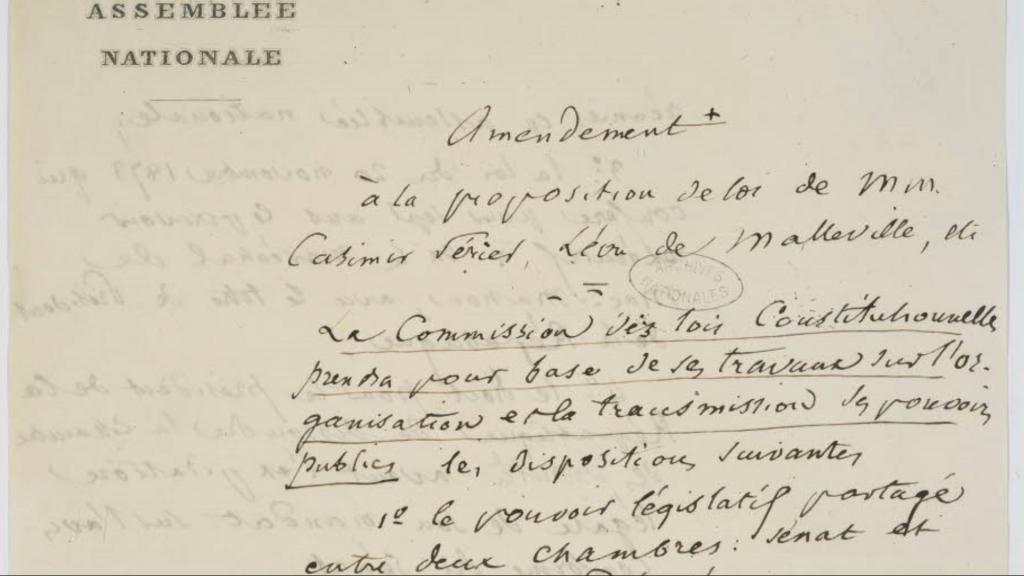 ASSEMBLÉE
NATIONALE
Amendement +
à la proposition de loi de MM.
Casimir Périer, Léon de Malleville, etc
ARCHIVES
NATIONALES
La Commission des lois Constitutionnelles
prendra pour base de ses travaux sur l'or-
ganisation et la transmission des pouvoirs
publics les dispositions suivantes
1º le pouvoir législatif partagé
entre deux chambres : sénat et